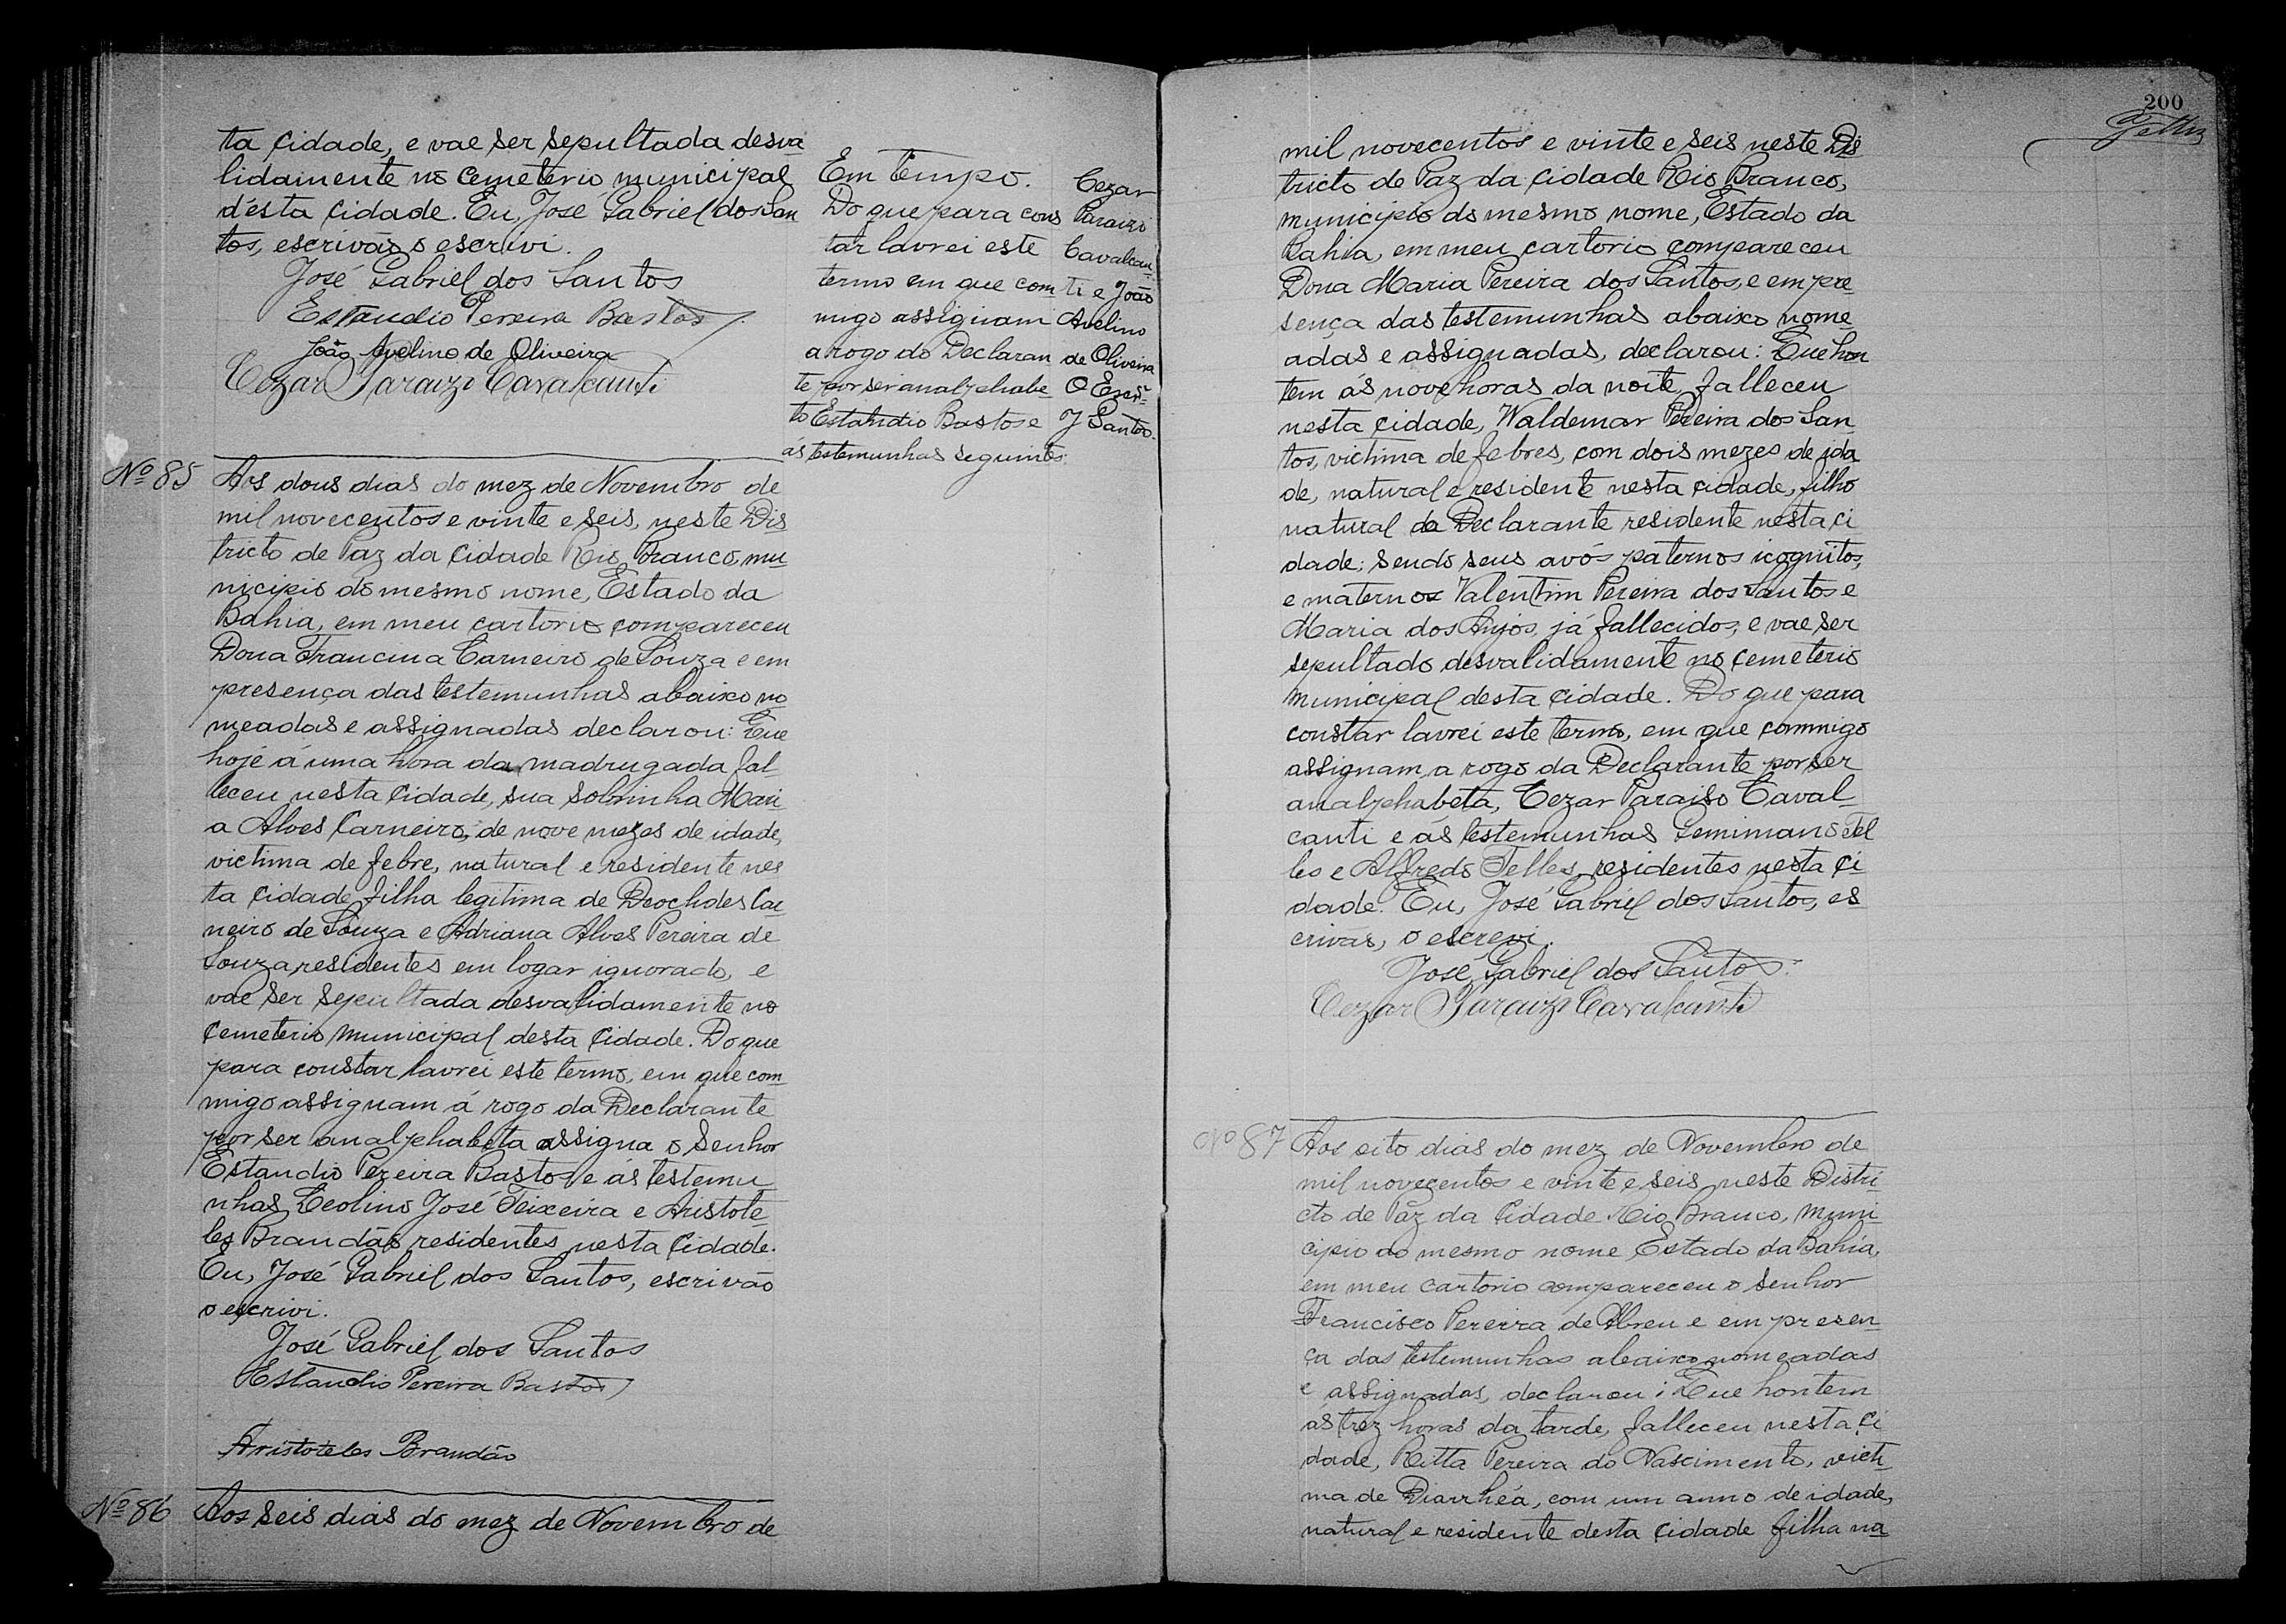 ta cidade, e vae ser sepultada desva
lidamente no cemeterio municipal
d'esta cidade. Eu, José Gabriel dos San
tos, escrivão o escrivi.
José Gabriel dos Santos
Estandio Pereira Bastos
João Avelino de Oliveira
Cezar Paraizo Cavalcanti
Em tempo.
Do que para cons
tar lavrei este
termo em que com
migo assignam
a rogo do Declaran
te por ser analphabe
to Estandio Bastos e
ás testemunhas seguintes:
Cezar
Paraizo
Cavalcan
ti e João
Avelino
de Oliveira
O Escr.
J Santos.
Nº 85 Aos dous dias do mez de Novembro de
mil novecentos e vinte e seis, neste Dis
tricto de Paz da Cidade Rio Branco, mu
nicipio do mesmo nome, Estado da
Bahia, em meu cartorio compareceu
Dona Francina Carneiro de Souza e em
presença das testemunhas abaixo no
meadas e assignadas declarou: Que
hoje á uma hora da madrugada fal
leceu nesta cidade, sua sobrinha Mari
a Alves Carneiro, de nove mezes de idade,
victima de febre, natural e residente nes
ta cidade filha legitima de Deoclides Car
neiro de Souza e Adriana Alves Pereira de
Souza residentes em logar ignorado, e
vae ser sepultada desvalidamente no
Cemeterio Municipal desta Cidade. Do que
para constar lavrei este termo, em que com
migo assignam á rogo da Declarante
por ser analphabeta assigna o Senhor
Estandio Pereira Bastos e ás testemu
nhas Leolino José Teixeira e Aristote
les Brandão residentes nesta Cidade.
Eu, José Gabriel dos Santos, escrivão
o escrivi.
José Gabriel dos Santos
Estandio Pereira Bastos
Aristoteles Brandão
Nº 86 Aos seis dias do mez de Novembro de
200
mil novecentos e vinte e seis neste Dis
tricto de Paz da Cidade Rio Branco,
municipio do mesmo nome, Estado da
Bahia, em meu cartorio compareceu
Dona Maria Pereira dos Santos, e em pre
sença das testemunhas abaixo nome
adas e assignadas, declarou: Que hon
tem ás nove horas da noite, falleceu
nesta cidade, Waldemar Pereira dos San
tos, victima de febres, com dois mezes de ida
de, natural e residente nesta cidade, filho
natural da Declarante residente nesta ci
dade; sendo seus avós paternos icognitos,
e maternos Valentim Pereira dos Santos e
Maria dos Anjos, já fallecidos, e vae ser
sepultado desvalidamente no cemeterio
municipal desta cidade. Do que para
constar lavrei este termo, em que commigo
assignam, a rogo da Declarante por ser
analphabeta, Cezar Paraiso Caval
canti e ás testemunhas Geminiano Tel
les e Alfredo Telles, residentes nesta ci
dade. Eu, José Gabriel dos Santos, es
crivão, o escrevi.
José Gabriel dos Santos.
Cezar Paraizo Cavalcanti
Nº 87 Aos oito dias do mez de Novembro de
mil novecentos e vinte e seis neste Distri
cto de Paz da Cidade Rio Branco, Muni
cipio do mesmo nome Estado da Bahia,
em meu cartorio compareceu o Senhor
Francisco Pereira de Abreu e em presen
ça das testemunhas abaixo nomeadas
e assignadas, declarou: Que hontem
ás trez horas da tarde, falleceu nesta ci
dade, Ritta Pereira do Nascimento, victi
ma de Diarrhéa, com um anno de idade,
natural e residente desta cidade filha na